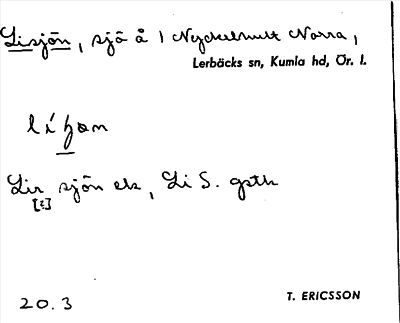 Lisjön, sjö å 1 Nyckelhult Norra,
Lerbäcks sn, Kumla hd, Ör. l.
Lir sjön ek, Li S. gstk
[i]
20.3
T. ERICSSON